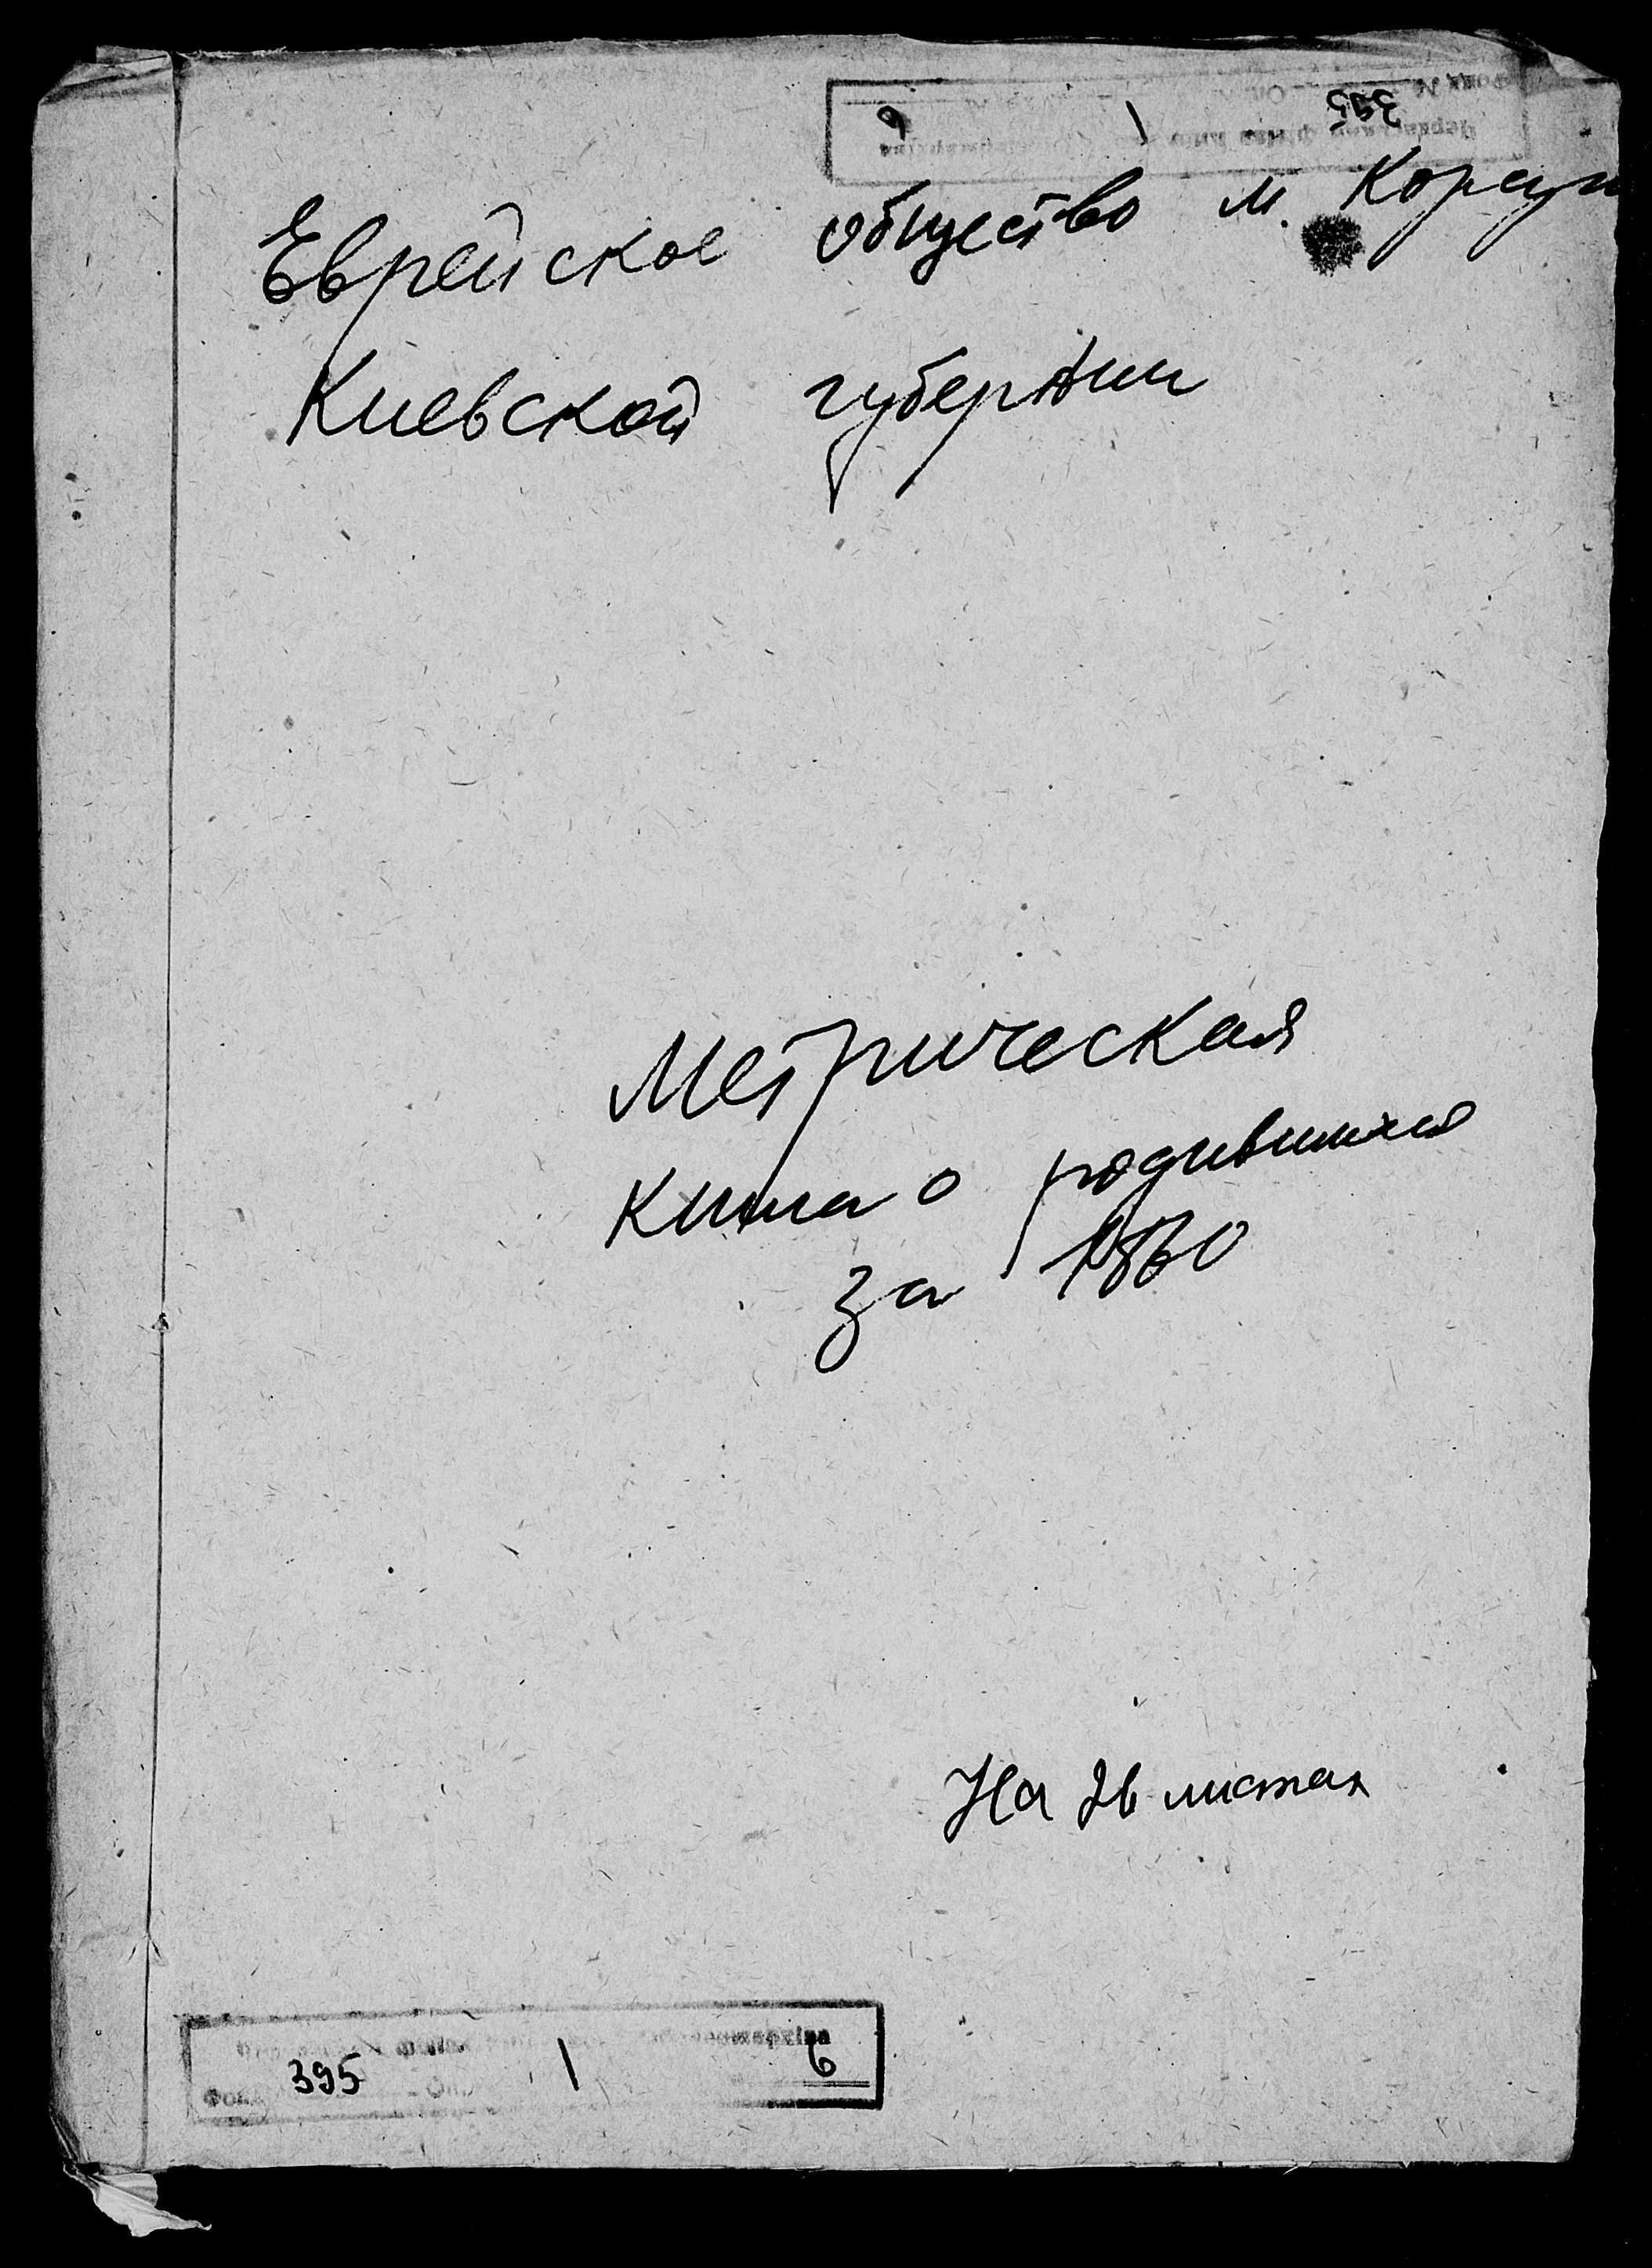 395 1 6
Еврейское общество м. Корсун
Киевской губернии
Метрическая
книга о родившихся
за 1860
На 26 листах
395 1 6